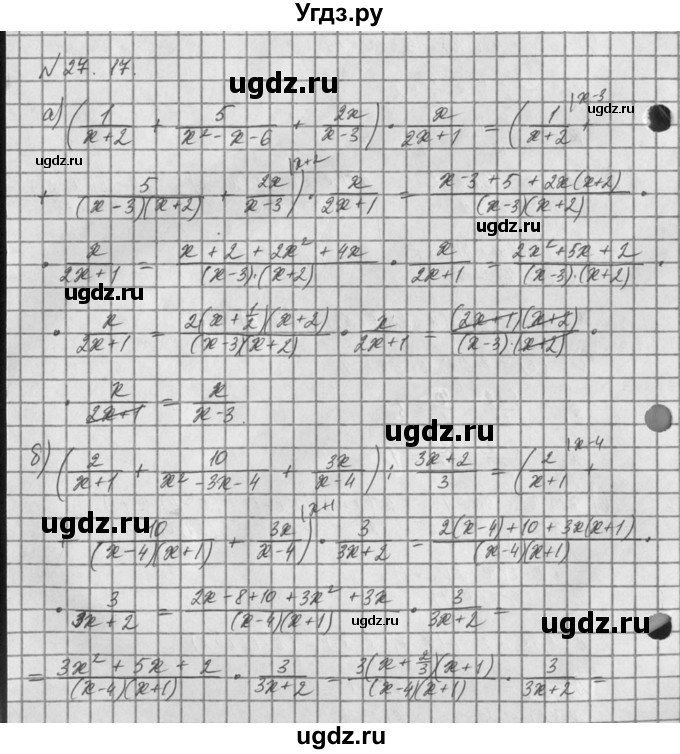 Угдз.ру
№ 27. 17.
ugdz.ru ugdz.ru
а) (1/(x+2) + 5/(x² - x - 6) + 2x/(x-3)) · x/(2x+1) = (1/(x+2) |x-3 +
ugdz.ru
+ 5/((x-3)(x+2)) + 2x/(x-3) |x+2) · x/(2x+1) = (x-3+5+2x(x+2))/((x-3)(x+2)) ·
ugdz.ru
· x/(2x+1) = (x+2+2x²+4x)/((x-3)·(x+2)) · x/(2x+1) = (2x²+5x+2)/((x-3)·(x+2)) ·
ugdz.ru
· x/(2x+1) = 2(x+1/2)(x+2)/((x-3)(x+2)) · x/(2x+1) = (2x+1)(x+2)/((x-3)·(x+2)) ·
· x/(2x+1) = x/(x-3).
ugdz.ru
б) (2/(x+1) + 10/(x² - 3x - 4) + 3x/(x-4)) : (3x+2)/3 = (2/(x+1) |x-4 +
ugdz.ru
+ 10/((x-4)(x+1)) + 3x/(x-4) |x+1) · 3/(3x+2) = (2(x-4)+10+3x(x+1))/((x-4)(x+1)) ·
· 3/(3x+2) = (2x-8+10+3x²+3x)/((x-4)(x+1)) · 3/(3x+2) =
ugdz.ru ugdz.ru
= (3x²+5x+2)/((x-4)(x+1)) · 3/(3x+2) = 3(x+2/3)(x+1)/((x-4)(x+1)) · 3/(3x+2) =
ugdz.ru